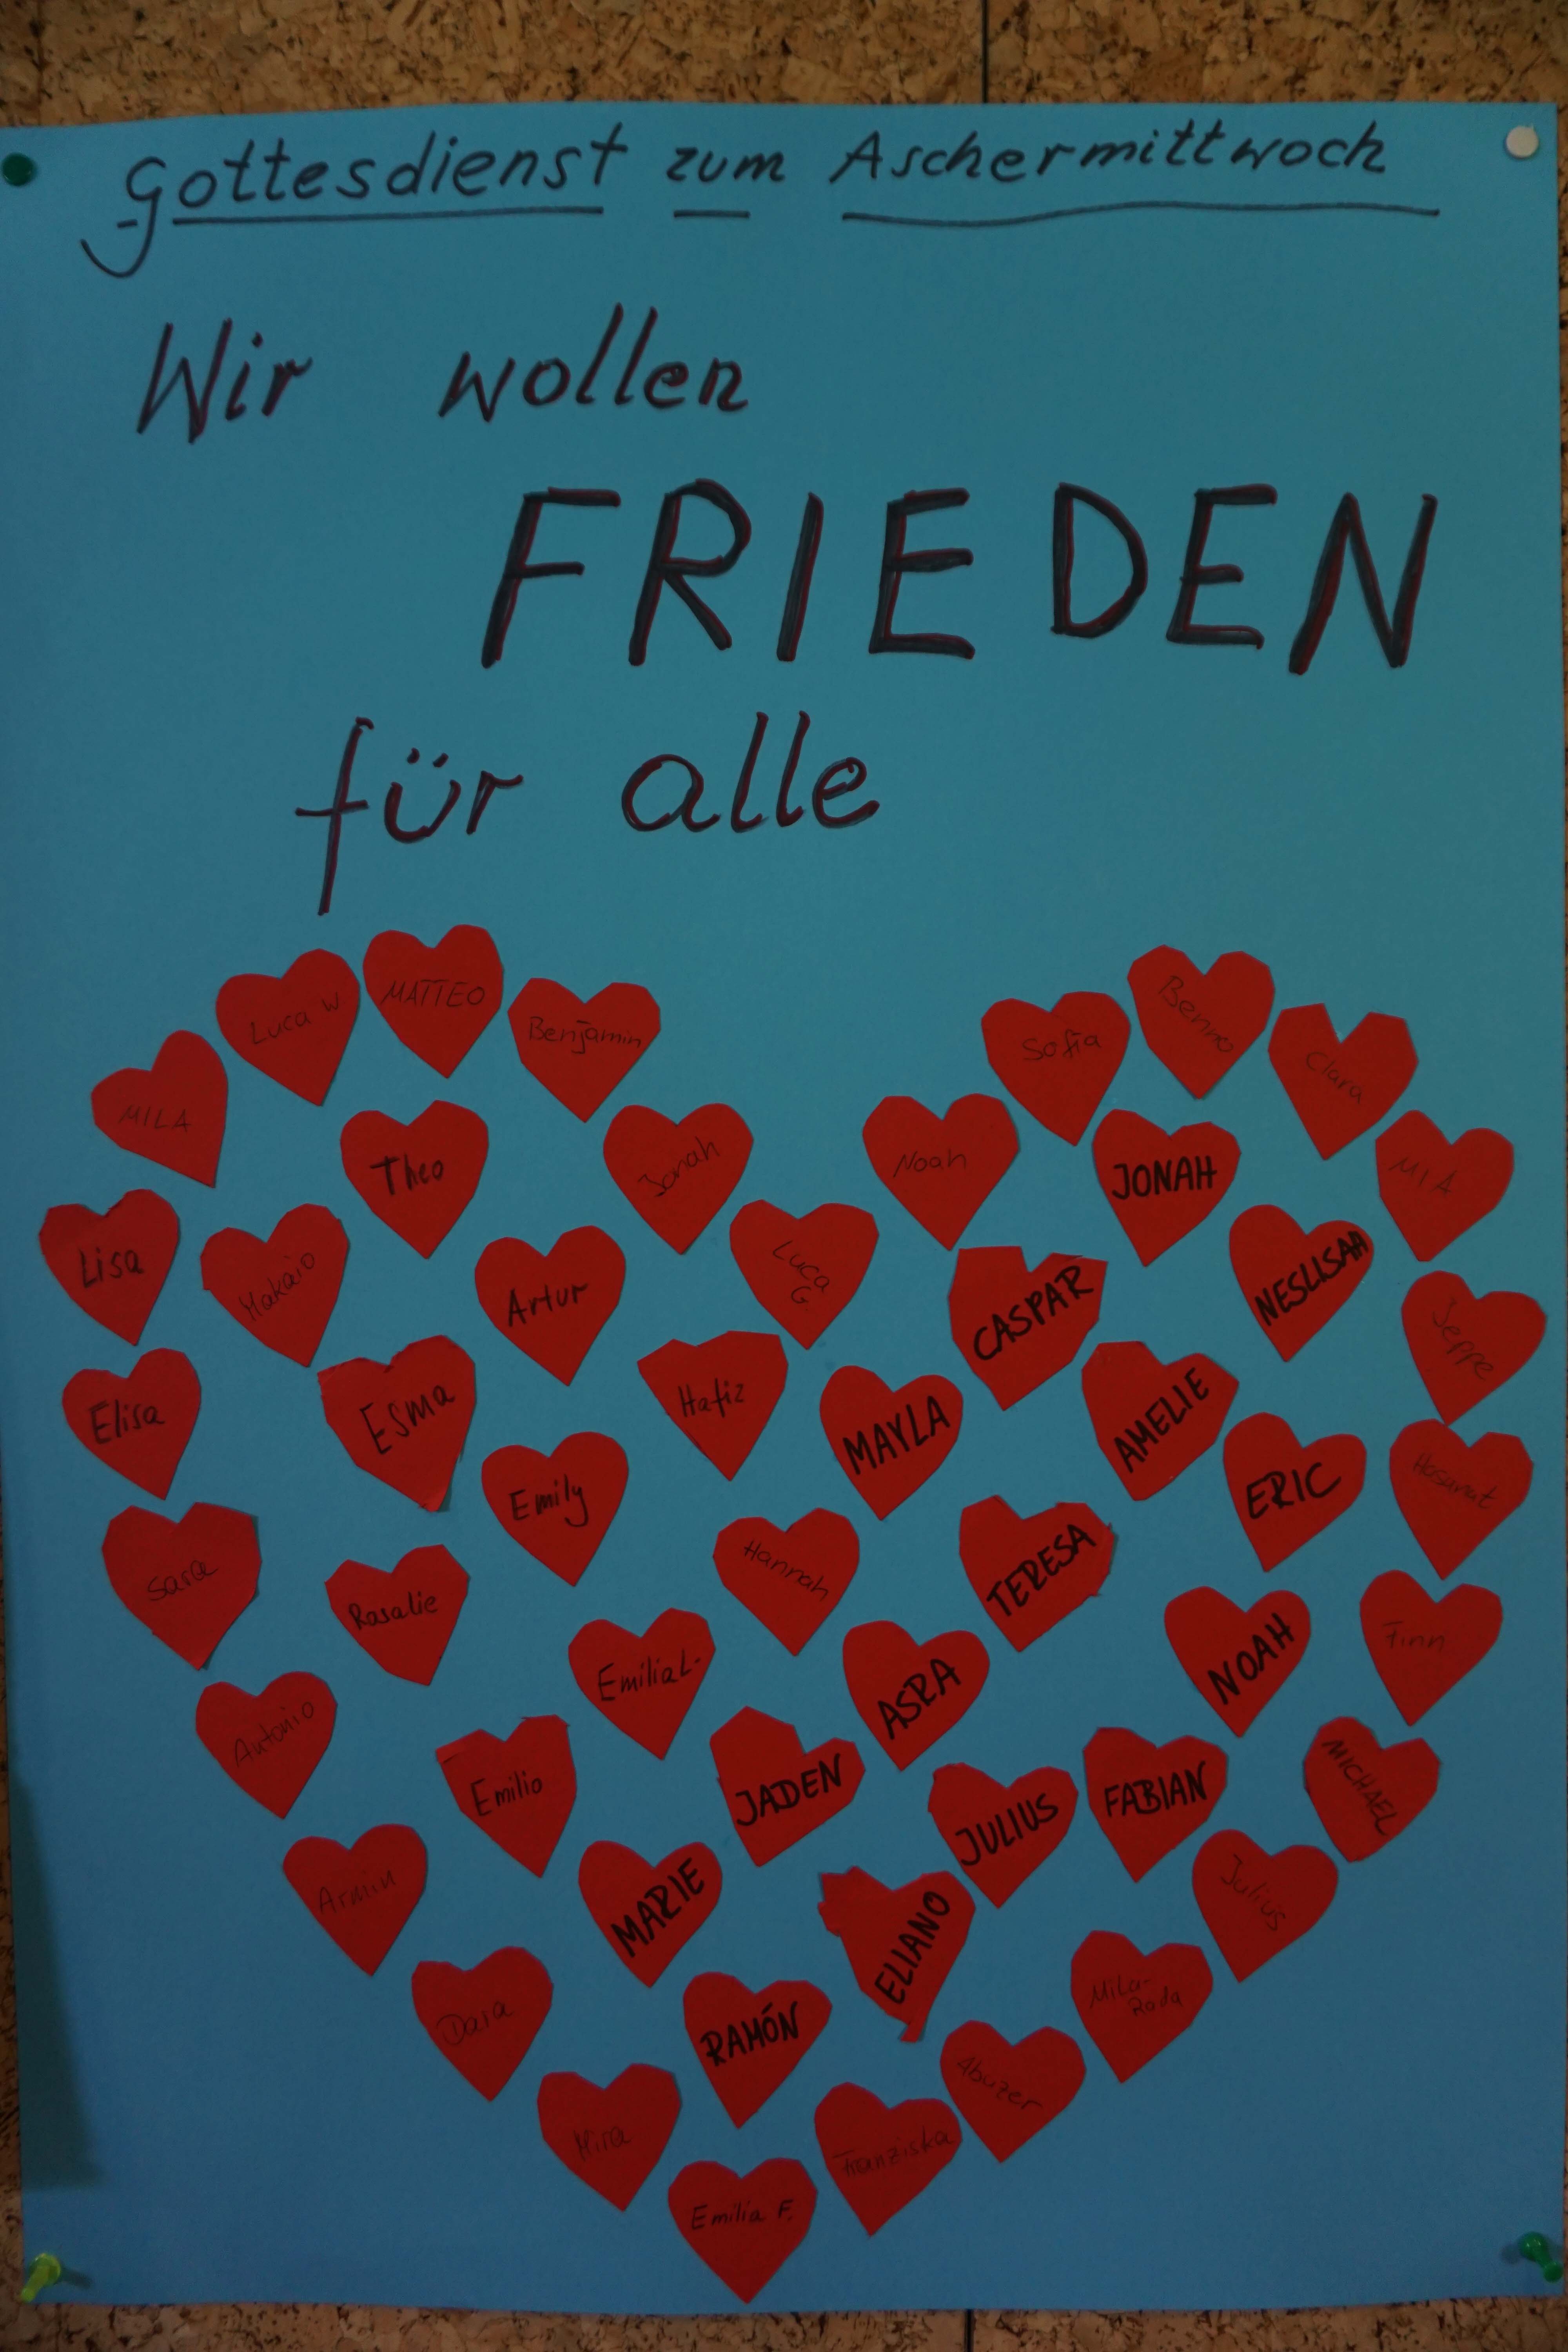 Gottesdienst zum Aschermittwoch
Wir wollen
FRIEDEN
für alle
MATTEO
Luca W
Benjamin
Benno
Sofia
Clara
MILA
Theo
Jonah
Noah
JONAH
MIA
Lisa
Makaio
Artur
Luca
G.
CASPAR
NESLISAA
Jeppe
Elisa
Esma
Hafiz
MAYLA
AMELIE
ERIC
Hasanat
Emily
Sara
Rosalie
Hannah
TERESA
Emilia L.
ASRA
NOAH
Finn
Antonio
Emilio
JADEN
JULIUS
FABIAN
MICHAEL
Armin
MARIE
ELIANO
Julius
RAMÓN
Mila-
Abuzer
Mira
Franziska
Emilia F.